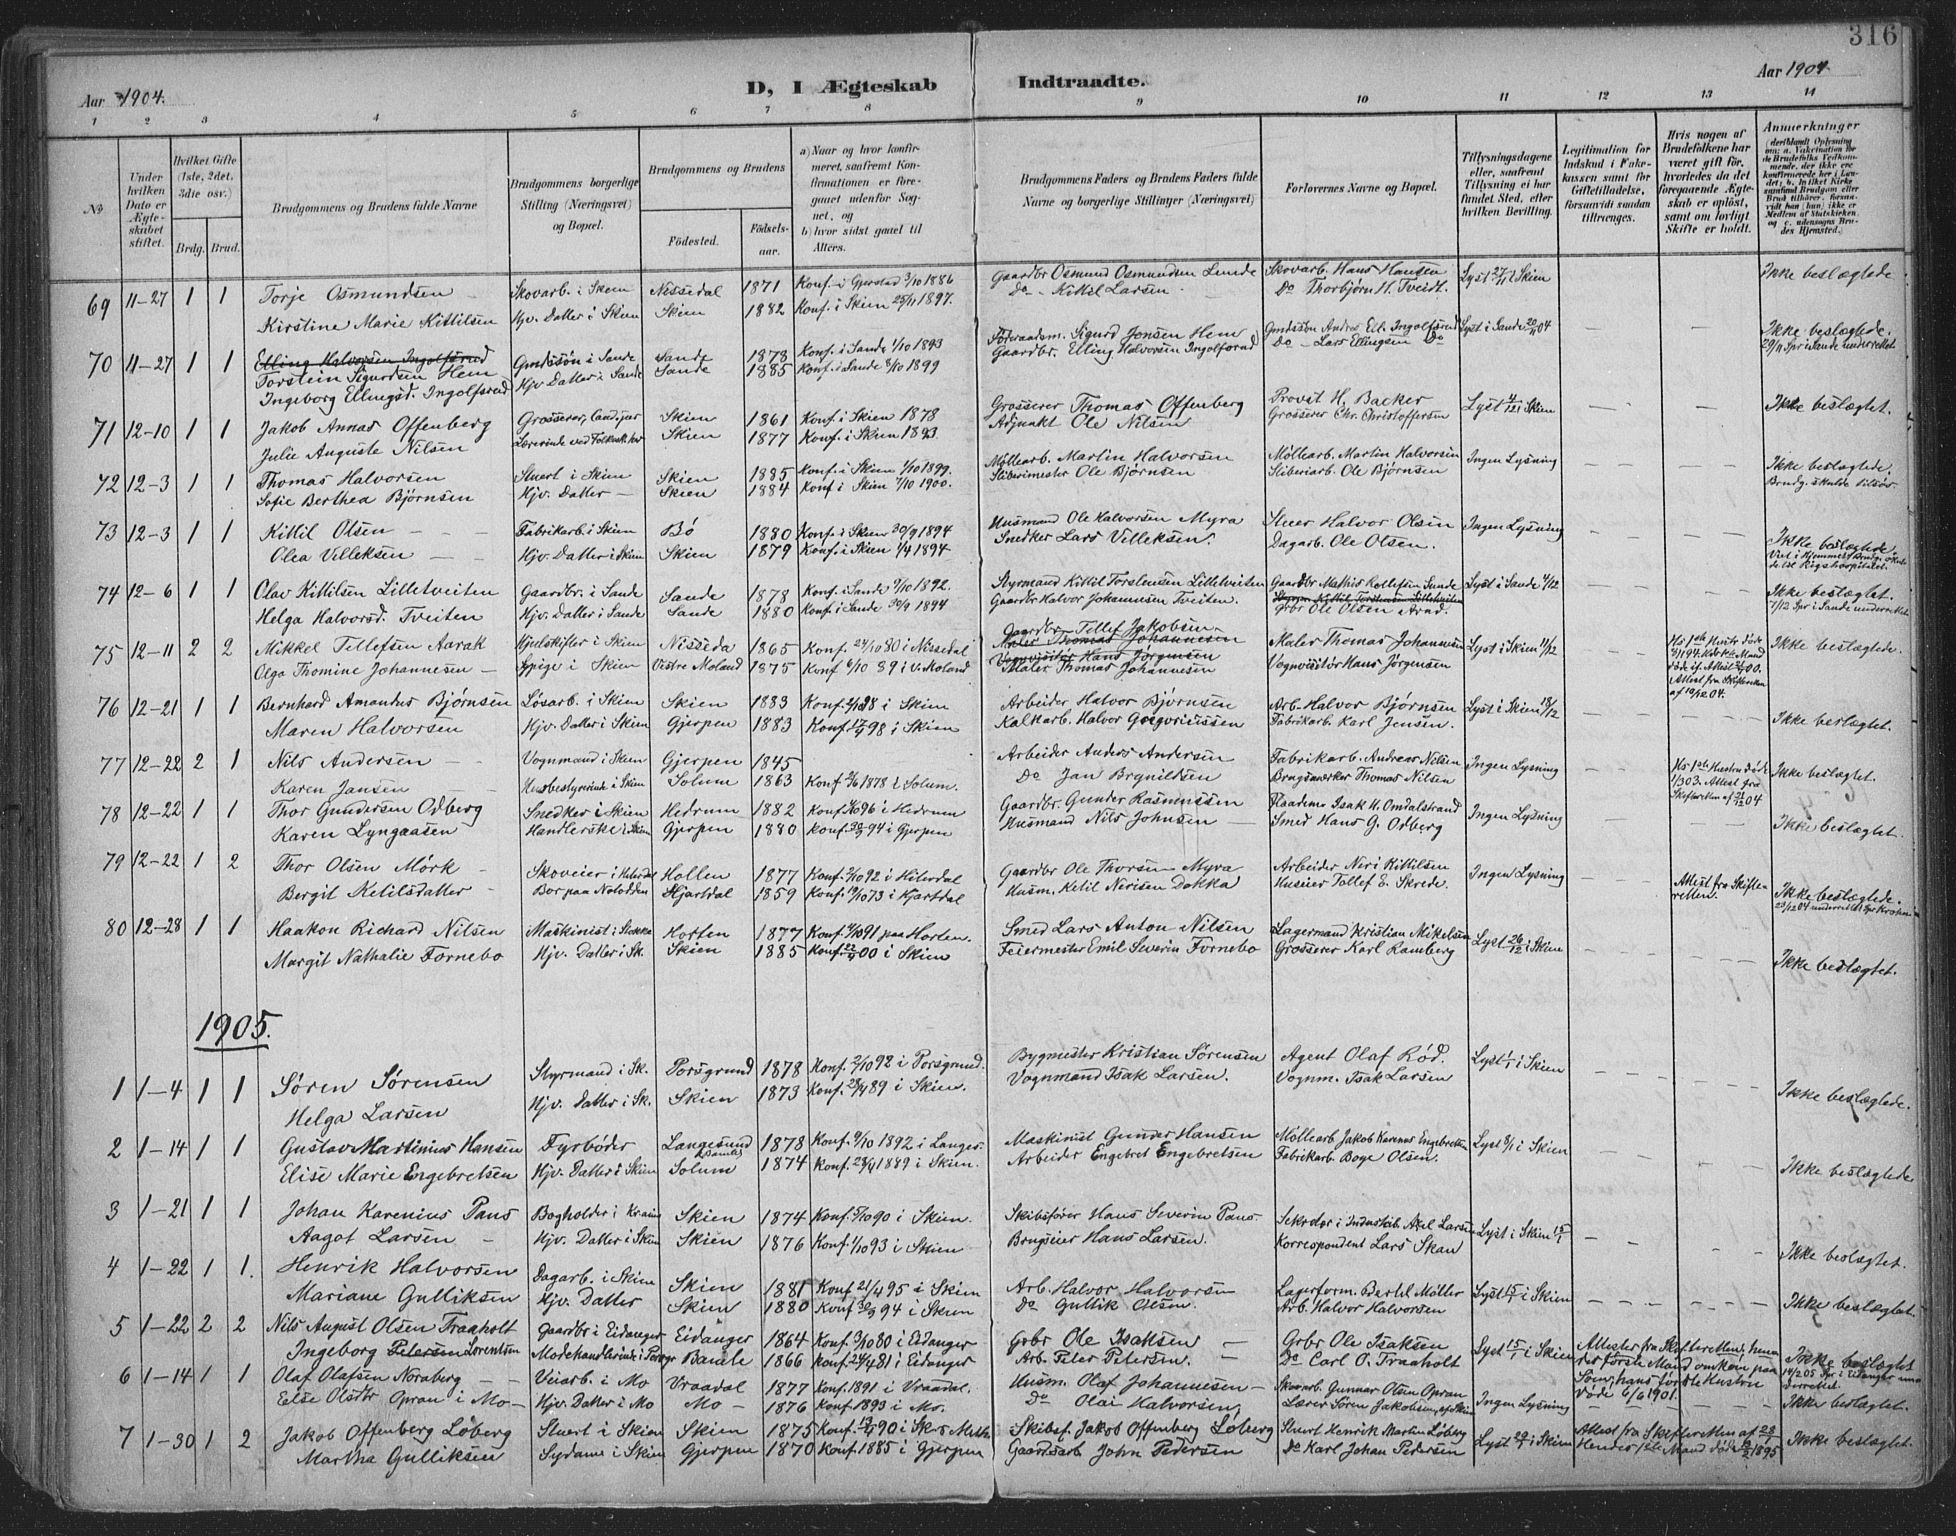 316
Aar 1904.
D, I Ægteskab Indtraadte.
Aar 1904
1 2 3 4 5 6 7 8 9 10 11 12 13 14
No
Under hvilken Dato er Ægteskabet stiftet.
Hvilket Gifte (1ste, 2det, 3die osv.)
Brdg. Brud.
Brudgommens og Brudens fulde Navne
Brudgommens borgerlige Stilling (Næringsvei) og Bopæl.
Brudgommens og Brudens
Födested. Födselsaar.
a) Naar og hvor konfirmeret, saafremt Konfirmationen er foregaaet udenfor Sognet, og
b) hvor sidst gaaet til Alters.
Brudgommens Faders og Brudens Faders fulde Navne og borgerlige Stillinger (Næringsvei)
Forlovernes Navne og Bopæl.
Tillysningsdagene eller, saafremt Tillysning ei har fundet Sted, efter hvilken Bevilling.
Legitimation for Indskud i Enkekassen samt for Giftetilladelse, forsaavidt saadan tiltrænges.
Hvis nogen af Brudefolkene har været gift för, hvorledes da det foregaaende Ægteskab er oplöst, samt om lovligt Skifte er holdt.
Anmerkninger
69 11-27 1 1 Torje Osmundsen Skovarb. i Skien Nissedal 1871 Konf. i Gjerstad 3/10 1886 Gaardbr Osmund Osmundsen Lunde Skovarb. Hans Hansen Lyst 27/11 i Skien Ikke beslægtede
Kirstine Marie Kittilsen Hjv. Datter i Skien Skien 1882 Konf. i Skien 1897. Do Kittil Larsen Do Thorbjørn H. Tveidt.
70 11-27 1 1 Elling Halvorsen Ingolfsrud
Torstein Sigurdsen Hem Gmdssøn i Sande Sande 1878 Konf. i Sande 1/10 1893 Sigurd Jensen Hem Lyst i Sande 04 Ikke beslægtede.
Ingeborg Ellingsd. Ingolfsrud Hjv. Datter i Sande Sande 1885 Konf. i Sande 1899 Gaardbr. Elling Halvorsen Ingolfsrud Do Lars Ellingsen Do
71 12-10 1 1 Jakob Annas Offenberg Grosserer, Skien 1861 Konf. i Skien 1878 Grosserer Thomas Offenberg Provst H. Backer Lyst 4/12 i Skien Ikke beslægtet.
Julie Auguste Nilsen Lærerinde ved Skien 1877 Konf. i Skien 1893. Adjunkt Ole Nilsen Grosserer Chr. Christoffersen
72 12-3 1 1 Thomas Halvorsen Stuert i Skien Skien 1885 Konf. i Skien 1/10 1899. Møllearb. Martin Halvorsen Møllearb. Martin Halvorsen Ingen Lysning Ikke beslægtede.
Sofie Berthea Bjørnsen Hjv. Datter Skien 1884 Konf i Skien 7/10 1900. Slibermester Ole Bjørnsen Sliberiarb. Ole Bjørnsen
73 12-3 1 1 Kittil Olsen Fabrikarb. i Skien Bø 1880 Konf. i Skien 30/9 1894 Husmand Ole Halvorsen Myra Stuer Halvor Olsen Ingen Lysning Ikke beslægtede.
Olea Villeksen Hjv. Datter i Skien Skien 1879 Konf. i Skien 1/4 1894. Snedker Lars Villeksen. Dagarb. Ole Olsen.
74 12-6 1 1 Olav Kittilsen Lilletveiten Gaardbr. i Sande Sande 1878 Konf. i Sande 1892. Styrmand Kittil Torstensen Lilletveiten Gaardbr Mathis Lyst i Sande 4/12 Ikke beslægtet.
Helga Halvorsd. Tveiten Hjv. Datter i Sande Sande 1880 Konf. i Sande 30/9 1894 Gaardbr Halvor Johannesen Tveiten. Grbr Ole Olsen
75 12-11 2 2 Mikkel Tellefsen Aarak Hjulskifter i Skien Nisseda 1865 Konf. 24/10 80 i Nissedal Gaardbr Tellef Jakobsen Maler Thomas Johannesen Lyst i Skien 4/12 Ikke beslægtede.
Olga Thomine Johannesen Vestre Moland 1875 Konf 6/10 89 i V. Moland Vognvisitør Hans Jørgensen Maler Thomas Johannesen Vognvisitör Hans Jørgensen Attest fra Skifteretten af 10/12 04.
76 12-21 1 1 Bernhard Amandus Bjørnsen Løsarb. i Skien Skien 1883 Konf. 98 i Skien Arbeider Halvor Bjørnsen Arb. Halvor Bjørnsen Lyst i Skien 18/12 Ikke beslægtet.
Maren Halvorsen Hjv. Datter i Skien Gjerpen 1883 Konf. 98 i Skien Kalkarb. Halvor Gregoriussen Fabrikarb. Karl Jensen.
77 12-22 2 1 Nils Andersen Vognmand i Skien Gjerpen 1845 Arbeider Anders Andersen Fabrikarb. Andreas Nilsen Ingen Lysning Ikke beslægtet.
Karen Jansen Husbestyrerinde i Skien Solum 1863 Konf. 1878 i Solum. Do Jan Brynildsen Brugsarbeider Thomas Nilsen
78 12-22 1 1 Thor Gundersen Odberg Snedker i Skien Hedrum 1882 Konf. 96 i Hedrum Gaardbr. Gunder Rasmussen Isak H. Omdalstrand Ingen Lysning Ikke beslægtet.
Karen Lyngaasen Handlerske i Skien Gjerpen 1880 Konf. 94 i Gjerpen Husmand Nils Johnsen Smed Hans G. Odberg
79 12-22 1 2 Thor Olsen Mørk Skoveier i Hiterdal Hollen 1877 Konf. 2/10 92 i Hiterdal Gaardbr Ole Thorsen Myra Arbeider Neri Kittilsen Ingen Lysning Attest fra Skifteretten. Ikke beslægtede.
Bergit Ketilsdatter Bor paa Notodden Hjartdal 1859 Konf. 19/10 73 i Hjartdal Husm. Ketil Nerisen Dokka Huseier Tollef E. Skrede.
80 12-28 1 1 Haakon Richard Nilsen Maskinist i Horten 1877 Konf. 91 paa Horten. Smed Lars Anton Nilsen Lagermand Kristian Mikelsen Lyst 26/12 i Skien Ikke beslægtet.
Margit Nathalie Fornebo Hjv. Datter i Sk. Skien 1885 Konf. 00 i Skien Feiermester Emil Severin Fornebo Grosserer Karl Ramberg
1905.
1 1-4 1 1 Søren Sørensen Styrmand i Sk. Porsgrund 1878 Konf. 2/10 92 i Porsgrund. Bygmester Kristian Sørensen Agent Olaf Rød. Lyst 1/1 i Skien Ikke beslægtede.
Helga Larsen Hjv. Datter i Sk. Skien 1873 Konf. 89 i Skien. Vognmand Isak Larsen. Vognm. Isak Larsen
2 1-14 1 1 Gustav Martinius Hansen Fyrbøder Langesund Bamble 1878 Konf. 9/10 1892 i Langes. Maskinist Gunder Hansen Møllearb. Jakob Karenus Engebretsen Lyst 8/1 i Skien Ikke beslægtede
Elise Marie Engebretsen Hjv. Datter i Skien Solum 1874 Konf. 1889 i Skien. Arbeider Engebret Engebretsen Fabrikarb. Boye Olsen.
3 1-21 1 1 Johan Karenius Pans Bogholder i Skien 1874 Konf. 5/10 90 i Skien. Skibsfører Hans Severin Pans Sekretær i Axel Larsen Lyst i Skien 15/1 Ikke beslægtet.
Aagot Larsen Hjv. Datter i Skien Skien 1876 Konf. 1/10 93 i Skien Brugseier Hans Larsen. Korrespondent Lars Skau
4 1-22 1 1. Henrik Halvorsen Dagarb. i Skien Skien 1881 Konf. 21/4 95 i Skien Arb. Halvor Halvorsen Lagerform. Bertel Møller Lyst 15/1 i Skien Ikke beslægtet.
Mariane Gulliksen Hjv. Datter Skien 1880 Konf. 94 i Skien Do Gullik Olsen. Arb. Halvor Halvorsen
5 1-22 2 2 Nils August Olsen Traaholt Gaardbr i Eidanger Eidanger 1864 Konf. 3/10 80 i Eidanger Grbr Ole Isaksen Grbr Ole Isaksen Lyst 15/1 i Skien Ikke beslægtet
Ingeborg Petersen Lorentsen Modehandlerinde i Porsgr Bamle 1866 Konf. 24/4 81 i Eidanger Arb. Peter Petersen. Do Carl O. Traaholt
6 1-14 1 1 Olaf Olafsen Noraberg Veiarb. i Mo Vraadal 1877 Konf. 1891 i Vraadal. Husm. Olaf Johannesen Skovarb. Gunnar Olsen Opran Ingen Lysning Ikke beslægtet.
Else Olsdtr Opran i Mo Hjv. Datter i Mo Mo 1876 Konf. 1893 i Mo. Do Olai Halvorsen Lærer Søren Jakobsen,
7 1-30 1 2 Jakob Offenberg Løberg Stuert i Skien Skien 1875 Konf. 90 i Sk. Skibsf. Jakob Offenberg Løberg Stuert Henrik Martin Løberg Lyst 29/1 i Skien Attest fra Skifteretten af Hendes 1ste Mand døde 1895 Ikke beslægtet.
Martha Gulliksen Sydame i Skien Gjerpen 1870 Konf 1885 i Gjerpen Gaardarb John Pedersen Do Karl Johan Pedersen